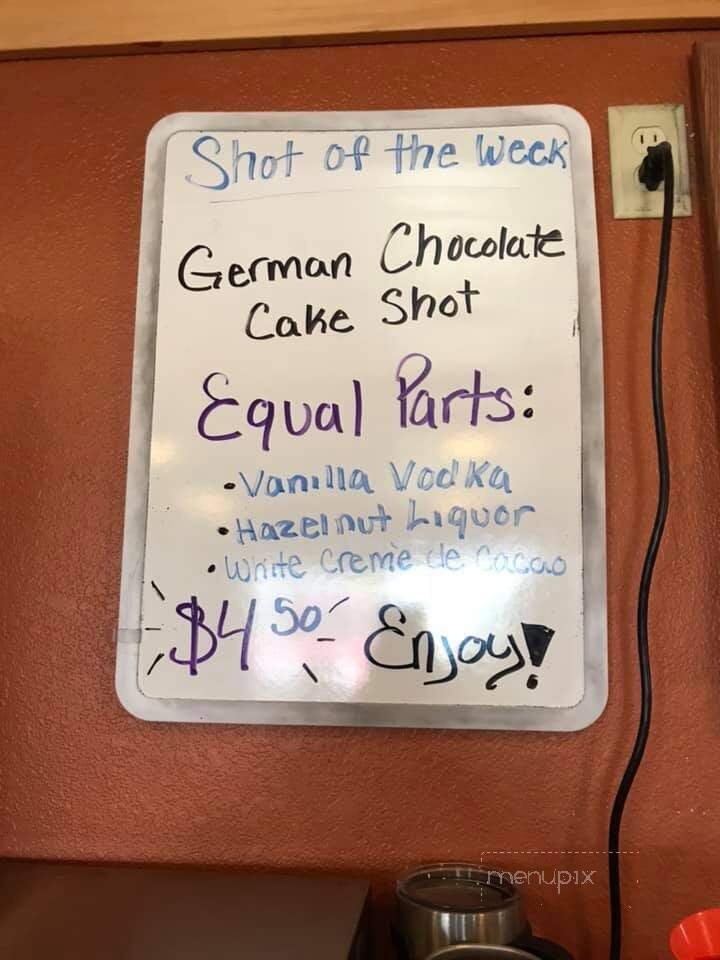 Shot of the Week
German Chocolate
Cake Shot
Equal Parts:
• Vanilla Vodka
• Hazelnut Liquor
• White Creme de Cacao
$4 50 Enjoy!
menupix